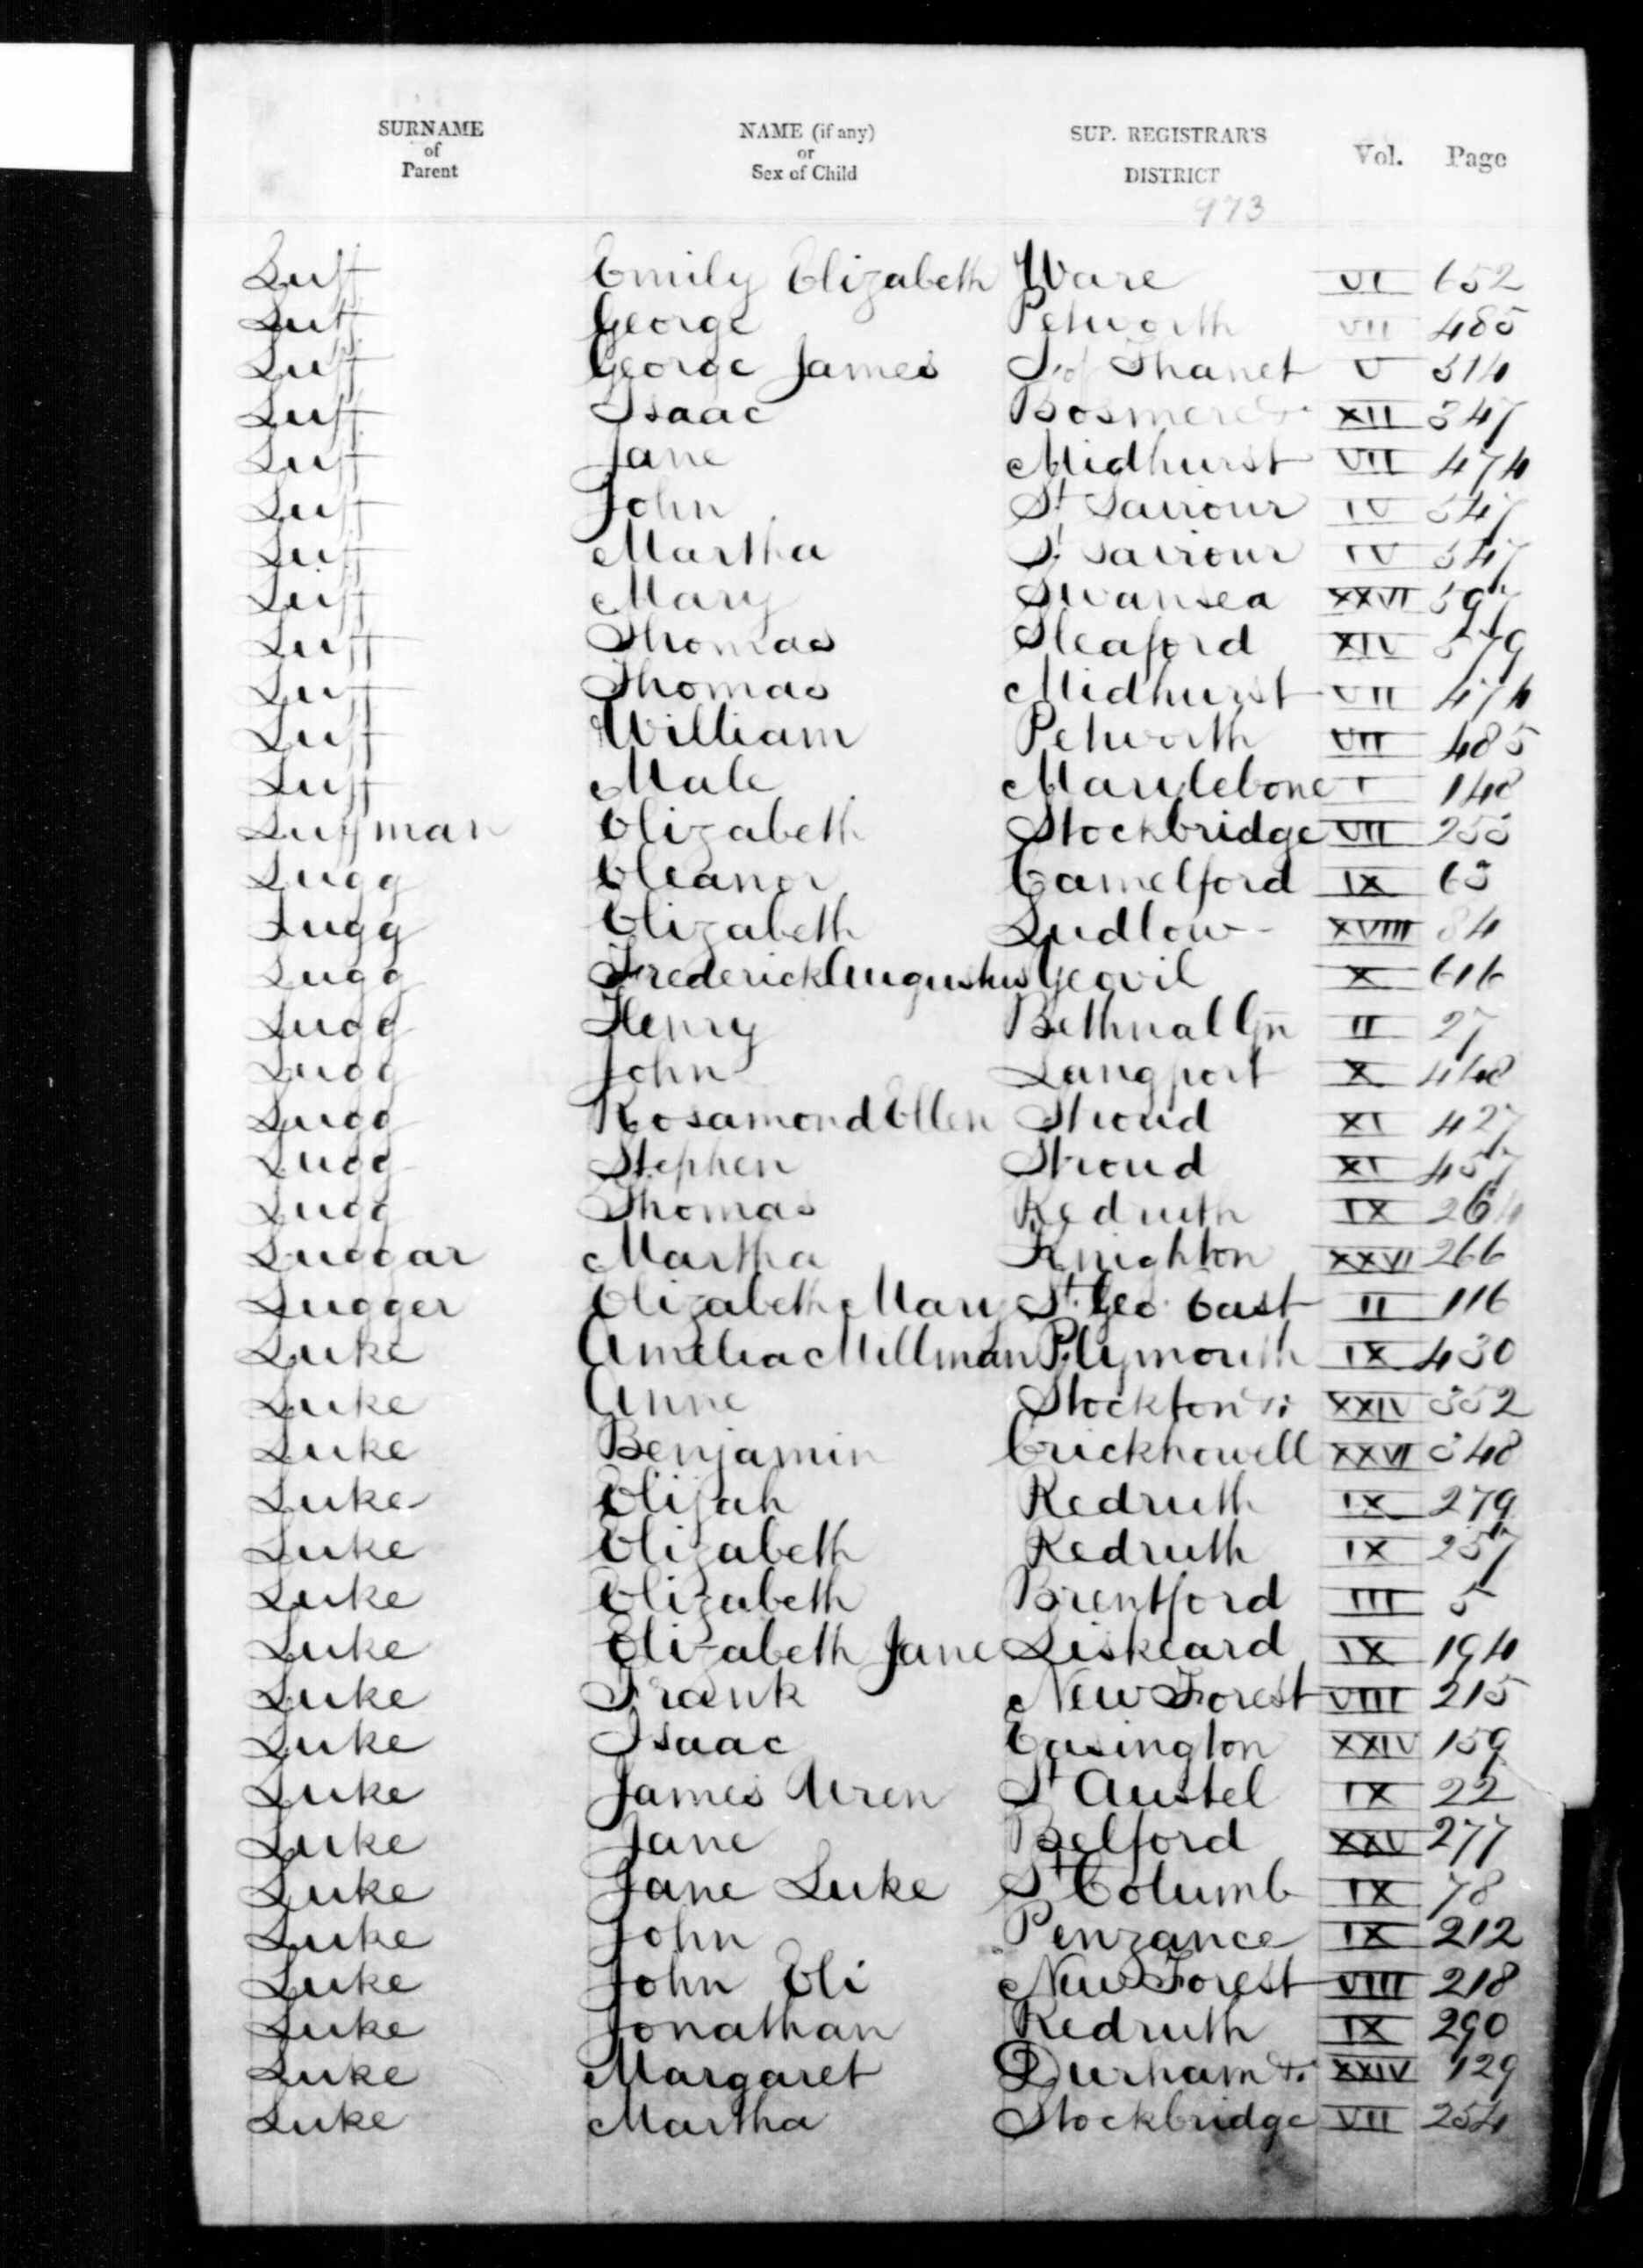 SURNAME of Parent NAME (if any) or Sex of Child SUP. REGISTRAR'S DISTRICT Vol. Page
973
Luff Emily Elizabeth Ware VI 652
Luff George Petworth VII 485
Luff George James I. of Thanet V 314
Luff Isaac Bosmere &c. XII 347
Luff Jane Midhurst VII 474
Luff John St Saviour IV 347
Luff Martha St Saviour IV 347
Luff Mary Swansea XXVI 597
Luff Thomas Sleaford XIV 579
Luff Thomas Midhurst VII 474
Luff William Petworth VII 485
Luff Male Marylebone I 148
Luffman Elizabeth Stockbridge VII 253
Lugg Eleanor Camelford IX 63
Lugg Elizabeth Ludlow XVIII 84
Lugg Frederick Augustus Yeovil X 616
Lugg Henry Bethnal Gn II 27
Lugg John Langport X 448
Lugg Rosamond Ellen Stroud XI 427
Lugg Stephen Stroud XI 457
Lugg Thomas Redruth IX 264
Luggar Martha Knighton XXVI 266
Lugger Elizabeth Mary St. Geo. East II 116
Luke Amelia Millman Plymouth IX 430
Luke Anne Stockton &c XXIV 352
Luke Benjamin Crickhowell XXVI 348
Luke Elijah Redruth IX 279
Luke Elizabeth Redruth IX 257
Luke Elizabeth Brentford III 5
Luke Elizabeth Jane Liskeard IX 194
Luke Frank New Forest VIII 215
Luke Isaac Easington XXIV 159
Luke James Uren St Austel IX 22
Luke Jane Belford XXV 277
Luke Jane Luke St Columb IX 78
Luke John Penzance IX 212
Luke John Eli New Forest VIII 218
Luke Jonathan Redruth IX 290
Luke Margaret Durham &c XXIV 129
Luke Martha Stockbridge VII 254